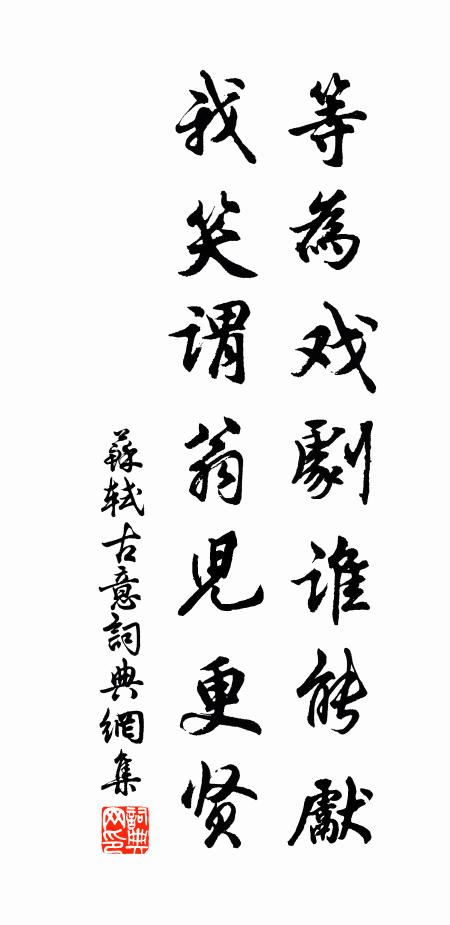 等為戏劇谁能獻
我笑谓翁児更贤
蘇轼古意詞典網集
詞典网印